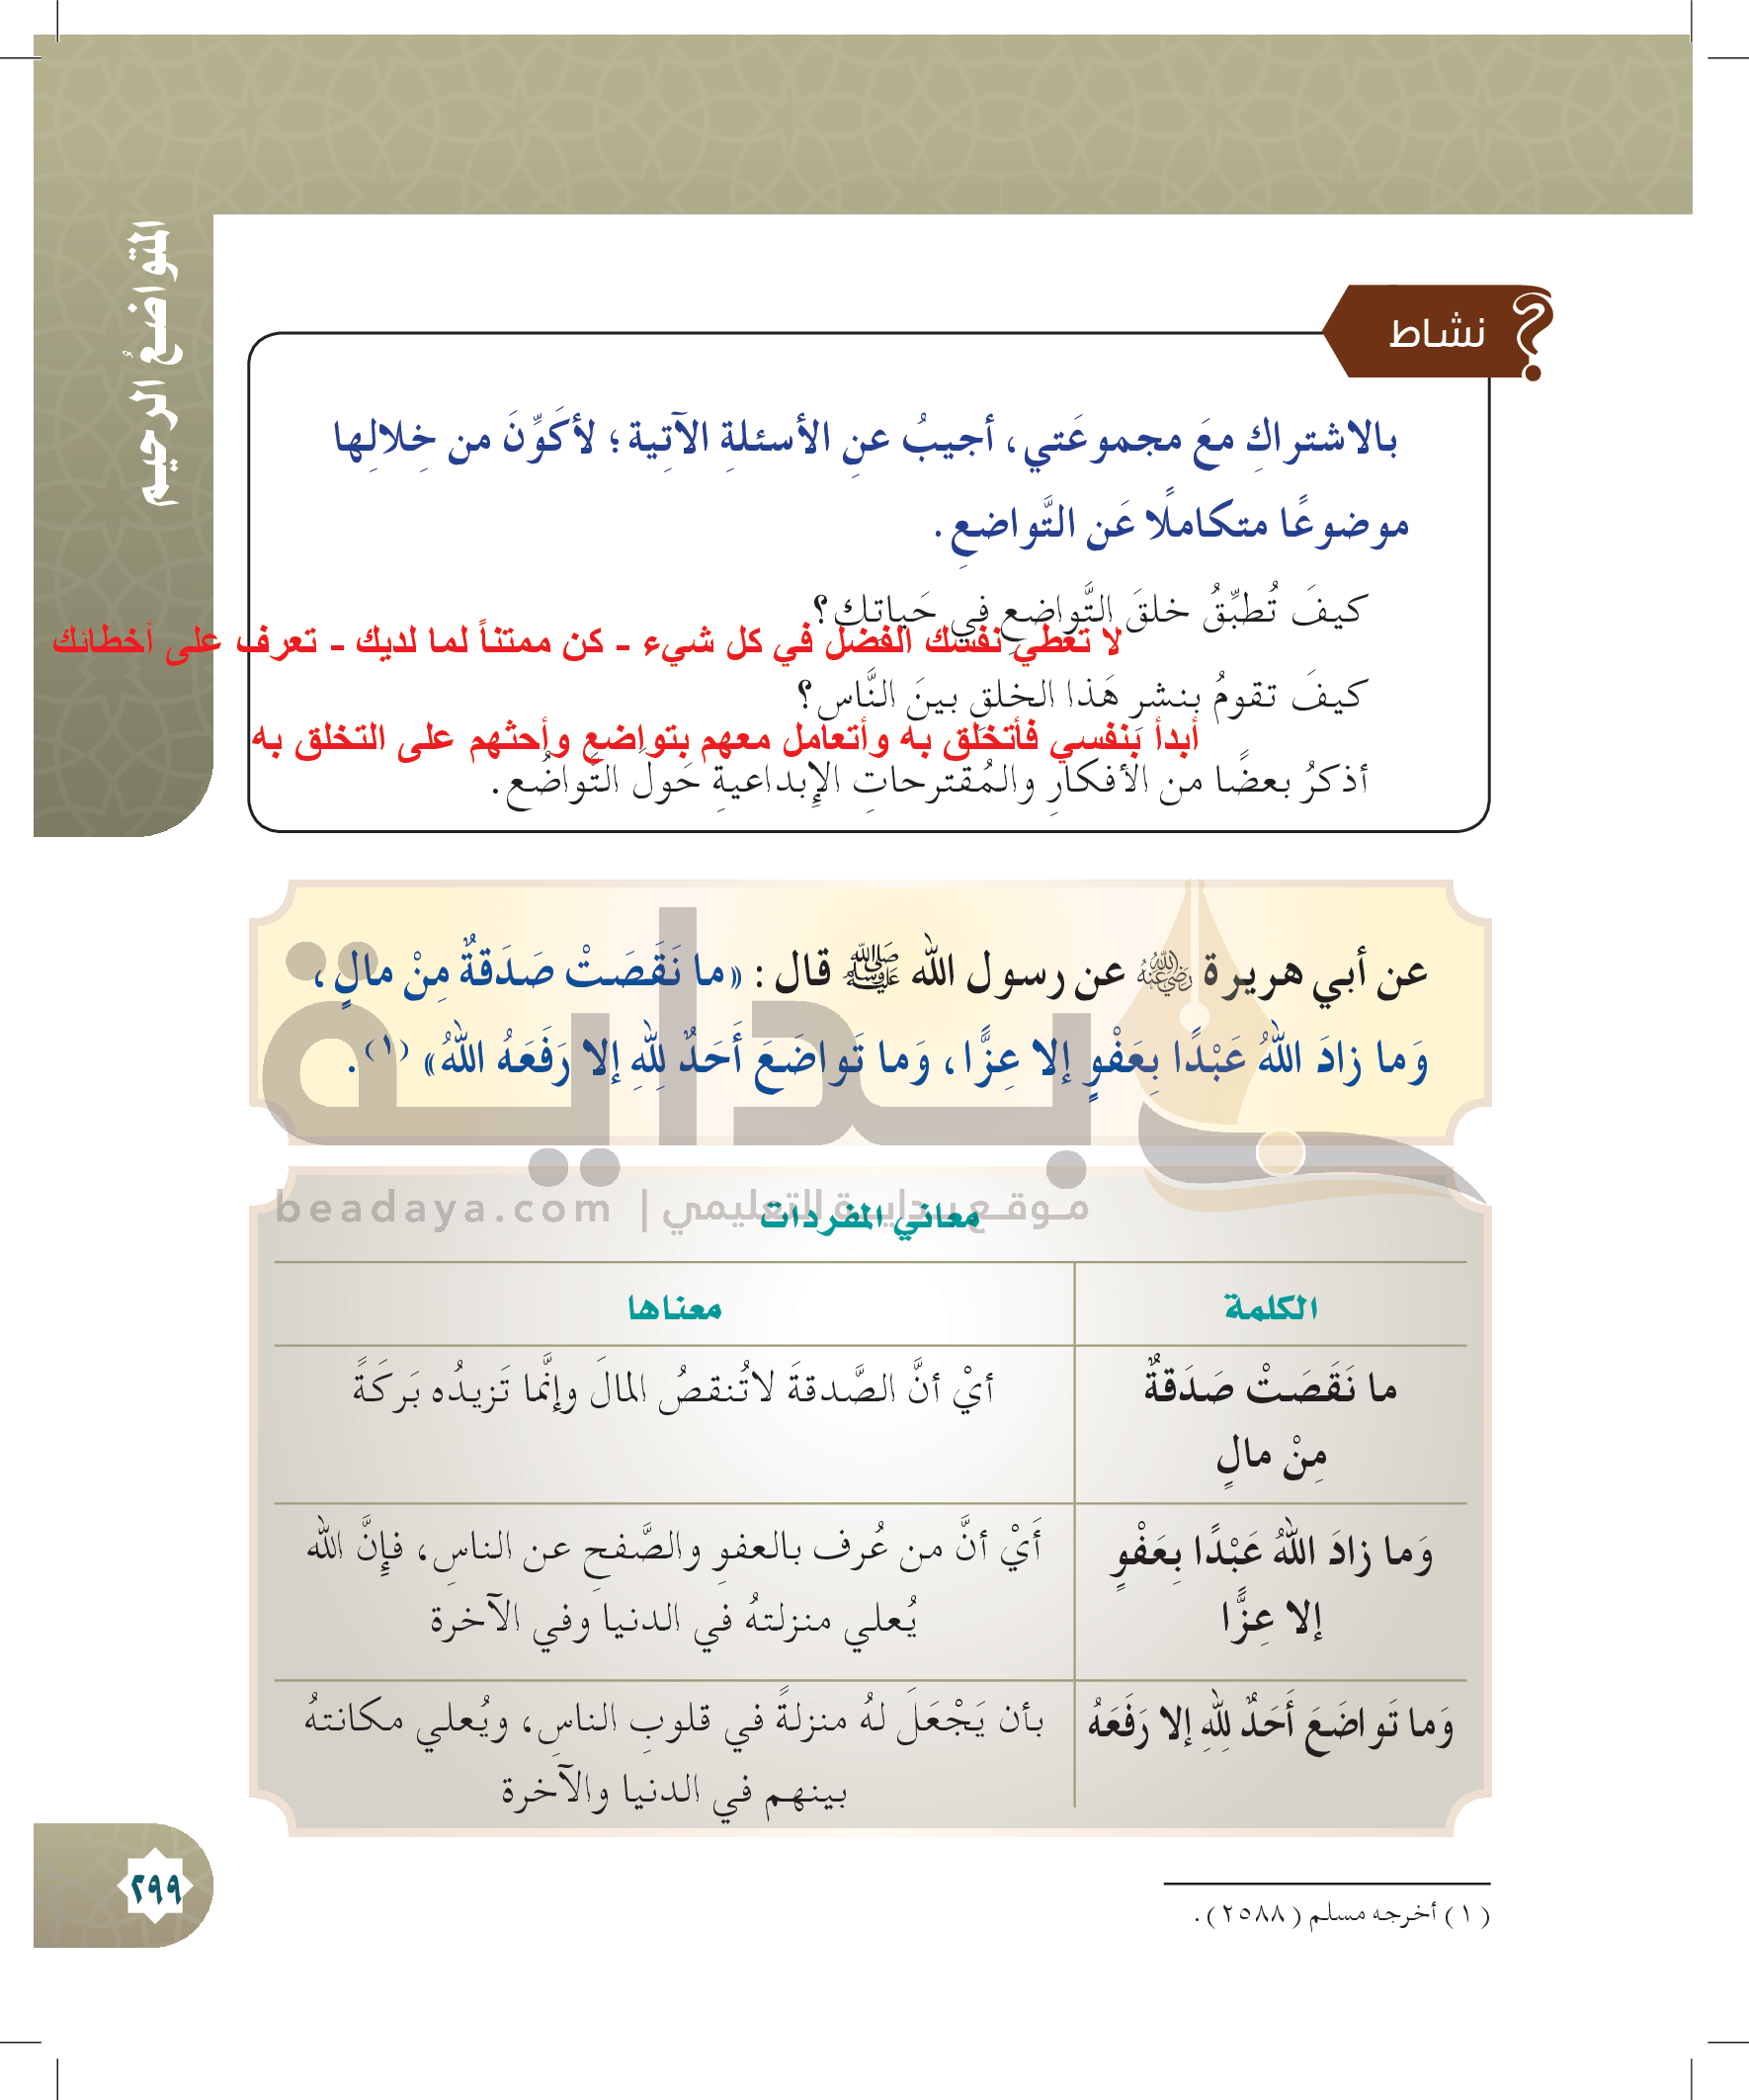 المتواضعُ الرحيم
نشاط
بالاشتراكِ معَ مجموعَتي، أجيبُ عنِ الأسئلةِ الآتِية؛ لأكَوِّنَ من خِلالِها
موضوعًا متكاملًا عَن التَّواضعِ.
كيفَ تُطبِّقُ خلقَ التَّواضعِ في حَياتك؟
لا تعطي نفسك الفضل في كل شيء - كن ممتناً لما لديك - تعرف على أخطائك
كيفَ تقومُ بنشرِ هَذا الخلقِ بينَ النَّاس؟
أبدأ بنفسي فأتخلق به وأتعامل معهم بتواضع وأحثهم على التخلق به
أذكرُ بعضًا من الأفكارِ والمُقترحاتِ الإبداعيةِ حَولَ التَّواضُع.
عن أبي هريرة رضي الله عنه عن رسول الله صلى الله عليه وسلم قال: «ما نَقَصَتْ صَدَقةٌ مِنْ مالٍ،
وَما زادَ اللهُ عَبْدًا بِعَفْوٍ إلا عِزًّا، وَما تَواضَعَ أَحَدٌ لِلهِ إلا رَفَعَهُ اللهُ» (١).
بداية
موقع بداية التعليمي | beadaya.com
معاني المفردات
الكلمة
معناها
ما نَقَصَتْ صَدَقةٌ
مِنْ مالٍ
أيْ أنَّ الصَّدقةَ لاتُنقصُ المالَ وإنَّما تَزيدُه بَركَةً
وَما زادَ اللهُ عَبْدًا بِعَفْوٍ
إلا عِزًّا
أَيْ أنَّ من عُرف بالعفوِ والصَّفحِ عن الناسِ، فإنَّ الله
يُعلي منزلتهُ في الدنيا وفي الآخرة
وَما تَواضَعَ أَحَدٌ لِلهِ إلا رَفَعَهُ
بأن يَجْعَلَ لهُ منزلةً في قلوبِ الناسِ، ويُعلي مكانتهُ
بينهم في الدنيا والآخرة
(١) أخرجه مسلم (٢٥٨٨).
٢٩٩